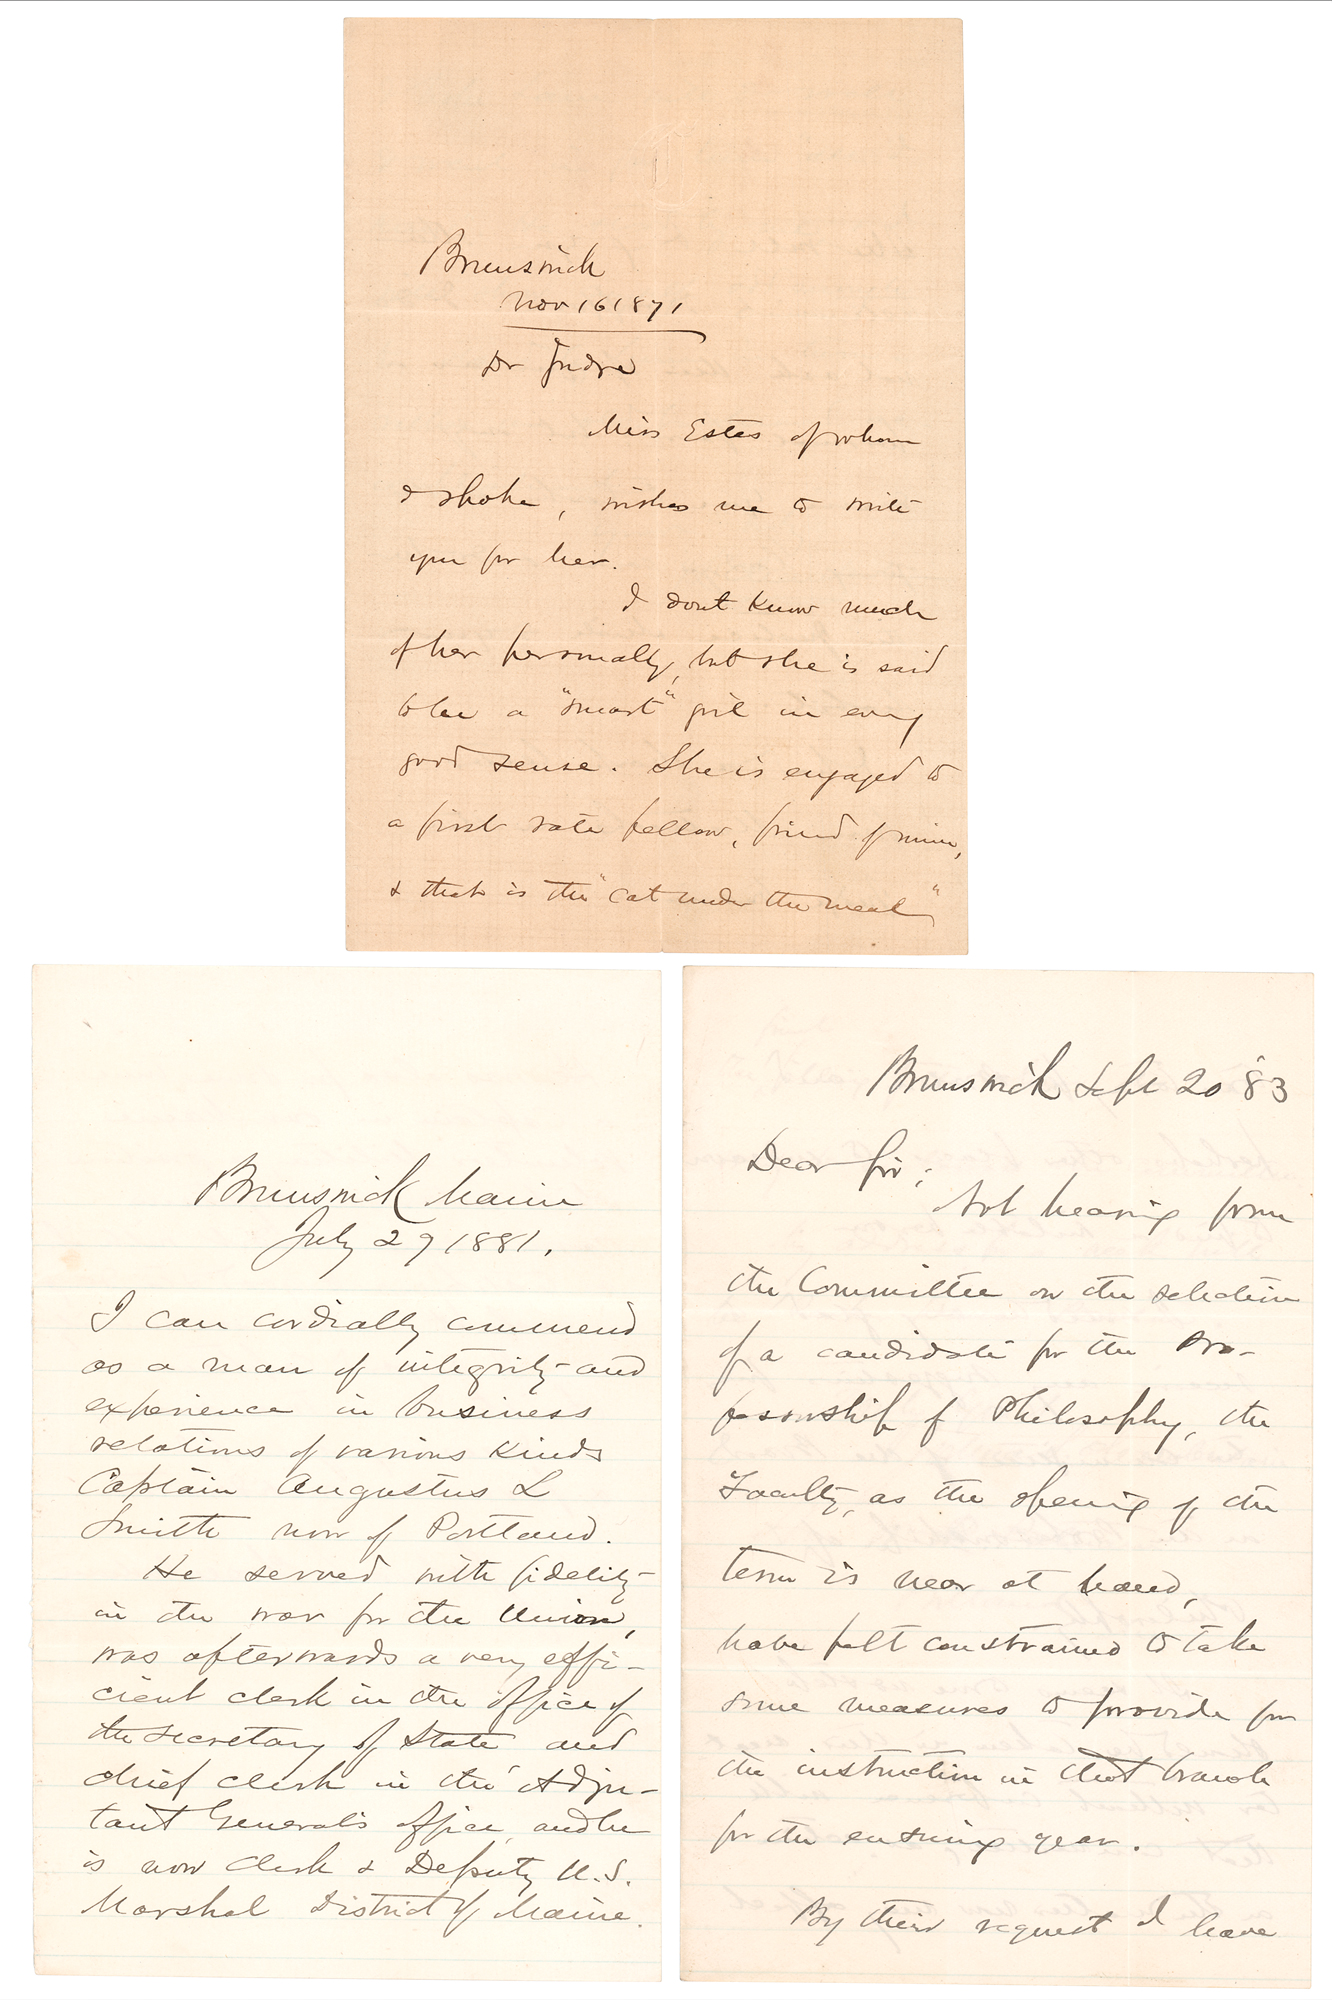 Brunswick
Nov 16 1871
Dr Judge
Miss Estes of whom
I spoke, wishes me to write
you for her.
I dont know much
of her personally, but she is said
to be a "smart" girl in every
good sense. She is engaged to
a first rate fellow, friend of mine,
& that is the "cat under the meal"
Brunswick Maine
July 29 1881.
I can cordially commend
as a man of integrity and
experience in business
relations of various kinds
Captain Augustus L
Smith now of Portland.
He served with fidelity
in the war for the Union,
was afterwards a very effi-
cient clerk in the office of
the Secretary of State and
chief clerk in the Adju-
tant General's office and he
is now Clerk & Deputy U.S.
Marshal District of Maine.
Brunswick Sept 20 '83
Dear Sir;
Not hearing from
the Committee on the selection
of a candidate for the Pro-
fessorship of Philosophy, the
Faculty, as the opening of the
term is near at hand,
have felt constrained to take
some measures to provide for
the instruction in that branch
for the ensuing year.
By their request I have